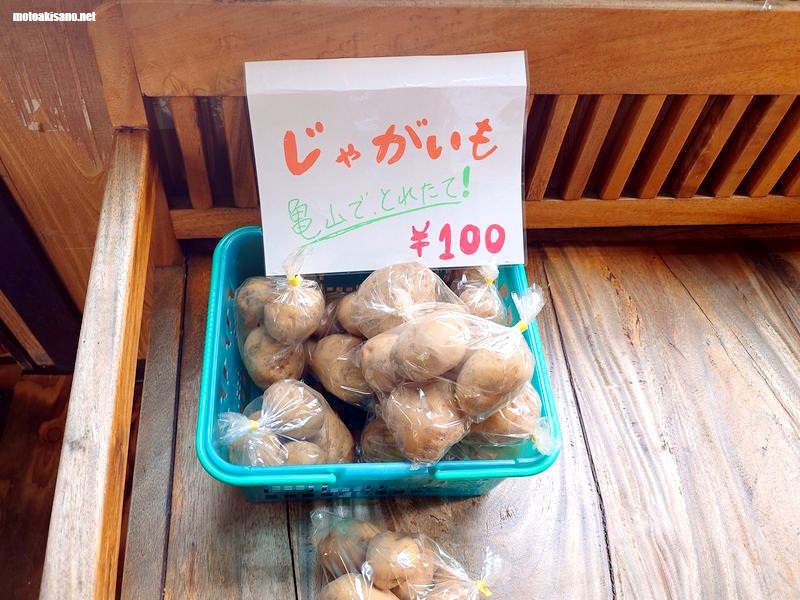 motoakisano.net
じゃがいも
亀山で、とれたて!
¥100